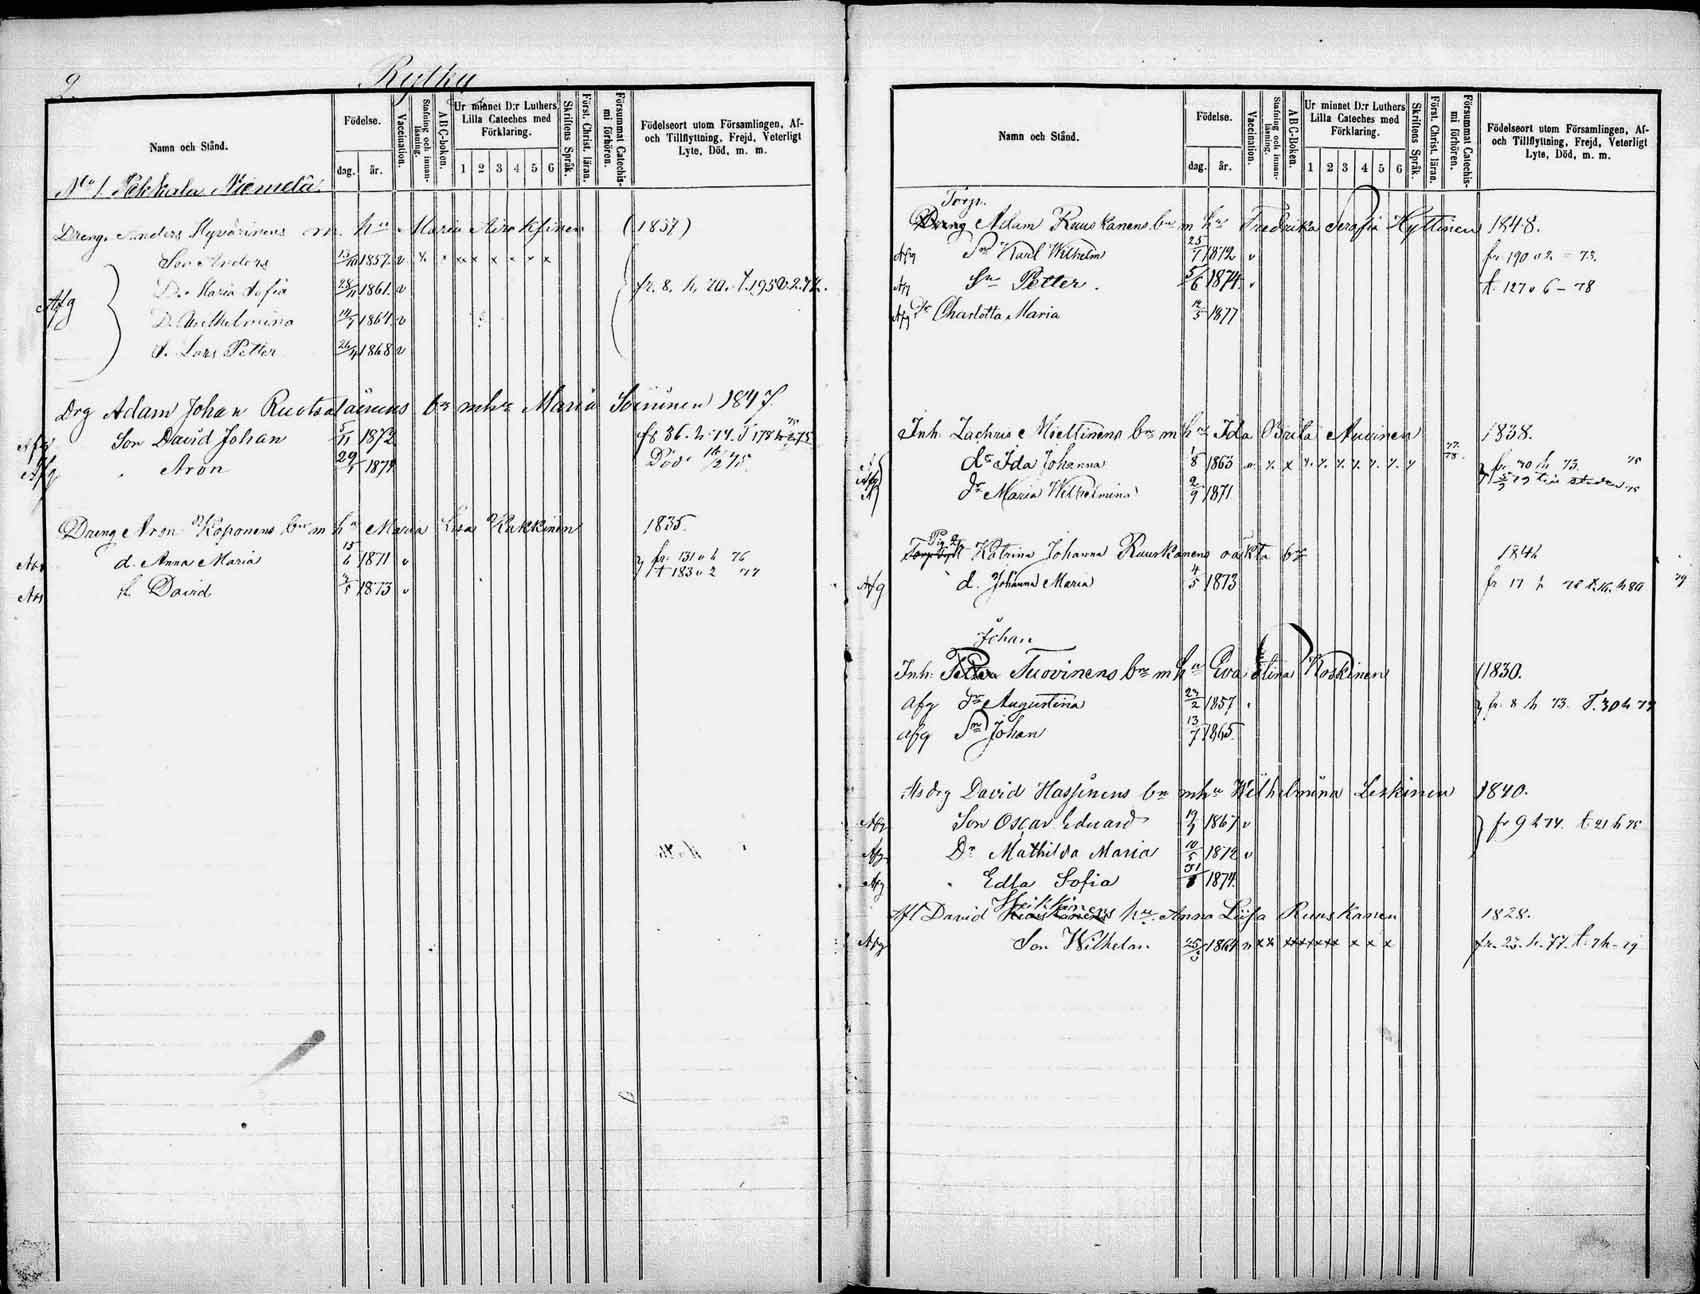 9.
Rytky
Namn och Stånd.
Födelse.
dag.
år.
Vaccination.
Stafning och innanläsning.
ABC-boken.
Ur minnet D:r Luthers Lilla Cateches med Förklaring.
1 2 3 4 5 6
Skriftens Språk.
Först. Christ. läran.
Försummat Catechismi förhören.
Födelseort utom Församlingen, Af- och Tillflyttning, Frejd, Veterligt Lyte, Död, m. m.
No 1. Pekkala Niemelä
Dreng. Anders Hyvärinens m. hu Maria Airaksinen (1837)
Son Anders 1857 v x x x x x x x x
D. Maria Sofia 28/11 1861 v fr. 8. h. 70. t. 195
Afg
D. Wilhelmina 1864 v
S. Lars Petter 1868 v
Drg Adam Johan Ruotsalainens bn m hu Maria 1847.
Afg Son David Johan 5/11 1872
Afg " Aron 29/ Död
Dreng Aron Koponens bn m hu Maria Lisa Kukkinen 1835.
d. Anna Maria 15/6 1871 v fr. 131 h 76
s. David 3/5 1873 v t 183 2 77
Namn och Stånd.
Födelse.
dag.
år.
Vaccination.
Stafning och innanläsning.
ABC-boken.
Ur minnet D:r Luthers Lilla Cateches med Förklaring.
1 2 3 4 5 6
Skriftens Språk.
Först. Christ. läran.
Försummat Catechismi förhören.
Födelseort utom Församlingen, Af- och Tillflyttning, Frejd, Veterligt Lyte, Död, m. m.
Torp.
Dreng Adam Ruuskanens bn m hu Fredrika Serafia Hyttinen 1848.
Afg Sn Karl Wilhelm 25/7 1872 v fr. 190 73.
Sn Petter. 5/6 1874 v t. 127 6 - 78
Afg Dr Charlotta Maria 12/5 1877
Inh. Zachris Miettinens bn m hu Ida Brita Auvinen 1838.
dr Ida Johanna 1/8 1863 fr. 70 h 73.
dr Maria Wilhelmina 2/9 1871
Pig.
Katrina Johanna Ruuskanens oäkta bn 1846
Afg d. Johanna Maria 4/5 1873 fr 17 h
Johan
Inh. Petter Tuovinens bn m hu Eva Stina Koskinen 1830.
Afg dr Augustina 23/2 1857 fr. 8 h 73. T. 30 h 79
Afg Sn Johan 13/7 1865
David Hassinens bn m hu Wilhelmina Leskinen 1840.
Afg Son Oscar Eduard 1867 v fr 9 h 74. t 21 h 75
Afg Dr Mathilda Maria 10/5 1872 v
Afg " Edla Sofia 31/8 1874.
Heikkinens
Afl David hu Anna Lisa Ruuskanen 1828.
Afg Son Wilhelm 1864 v x x x x x x x x x x fr. 23. h. 77. t. 7 h - 79